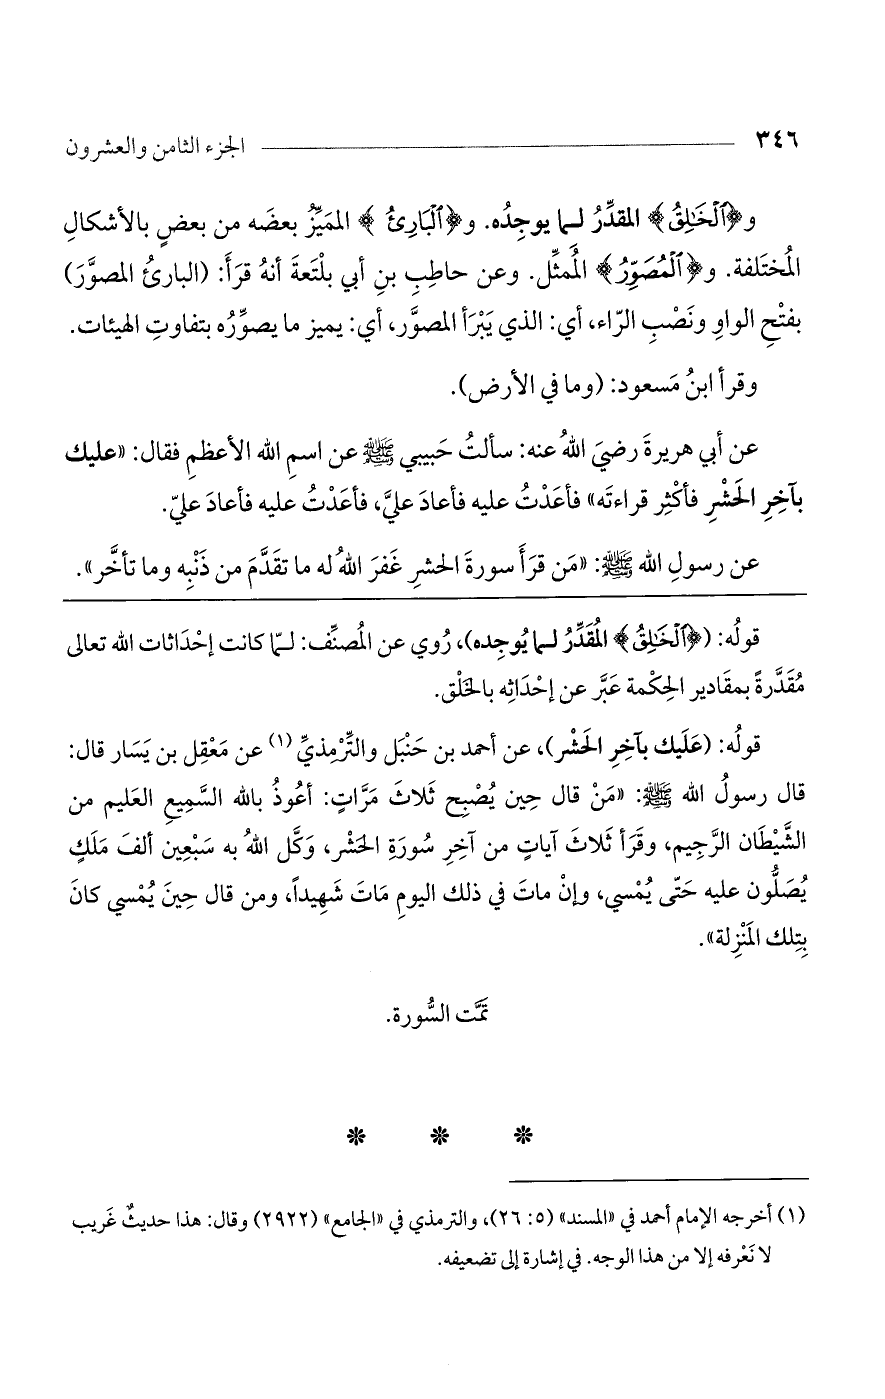 ٣٤٦ الجزء الثامن والعشرون
و﴿ٱلْخَٰلِقُ﴾ المقدِّرُ لـما يوجِدُه. و﴿ٱلْبَارِئُ﴾ المَميِّزُ بعضَه من بعضٍ بالأشكالِ
المُختَلفة. و﴿ٱلْمُصَوِّرُ﴾ المُمثِّل. وعن حاطِبِ بنِ أبي بلْتَعةَ أنهُ قرَأَ: (البارئُ المصوَّرَ)
بفتْحِ الواوِ ونَصْبِ الرّاء، أي: الذي يَبْرَأ المصوَّر، أي: يميز ما يصوِّرُه بتفاوتِ الهيئات.
وقرأ ابنُ مَسعود: (وما في الأرض).
عن أبي هريرةَ رضيَ اللهُ عنه: سألتُ حَبيبي ﷺ عن اسمِ الله الأعظمِ فقال: «عليك
بآخِرِ الحَشْرِ فأكْثِر قراءتَه» فأعَدْتُ عليه فأعادَ عليَّ، فأعَدْتُ عليه فأعادَ عليّ.
عن رسولِ الله ﷺ: «مَن قرَأَ سورةَ الحشرِ غَفرَ اللهُ له ما تقَدَّمَ من ذَنْبِه وما تأخَّر».
قولُه: (﴿ٱلْخَٰلِقُ﴾ المُقَدِّرُ لـما يُوجِده)، رُوي عن المُصنِّف: لـمّا كانت إحْدَاثات الله تعالى
مُقَدَّرةً بمقَادير الحِكْمة عَبَّر عن إحْدَاثِه بالخَلْق.
قولُه: (عَلَيك بآخِرِ الحَشْر)، عن أحمد بن حَنْبَل والتِّرْمِذيِّ (١) عن مَعْقِل بن يَسَار قال:
قال رسولُ الله ﷺ: «مَنْ قال حِين يُصْبِح ثَلاثَ مَرَّاتٍ: أعُوذُ بالله السَّمِيعِ العَليم من
الشَّيْطَان الرَّجِيم، وقَرَأ ثَلاثَ آياتٍ من آخِرِ سُورَةِ الحَشْر، وَكَّل اللهُ به سَبْعِين ألفَ مَلَكٍ
يُصَلُّون عليه حَتّى يُمْسي، وإنْ ماتَ في ذلك اليومِ مَاتَ شَهِيداً، ومن قال حِينَ يُمْسي كانَ
بِتِلك المَنْزِلة».
تمَّت السُّورة.
(١) أخرجه الإمام أحمد في «المسند» (٥: ٢٦)، والترمذي في «الجامع» (٢٩٢٢) وقال: هذا حديثٌ غَريب
لا نَعْرفه إلا من هذا الوجه. في إشارة إلى تضعيفه.